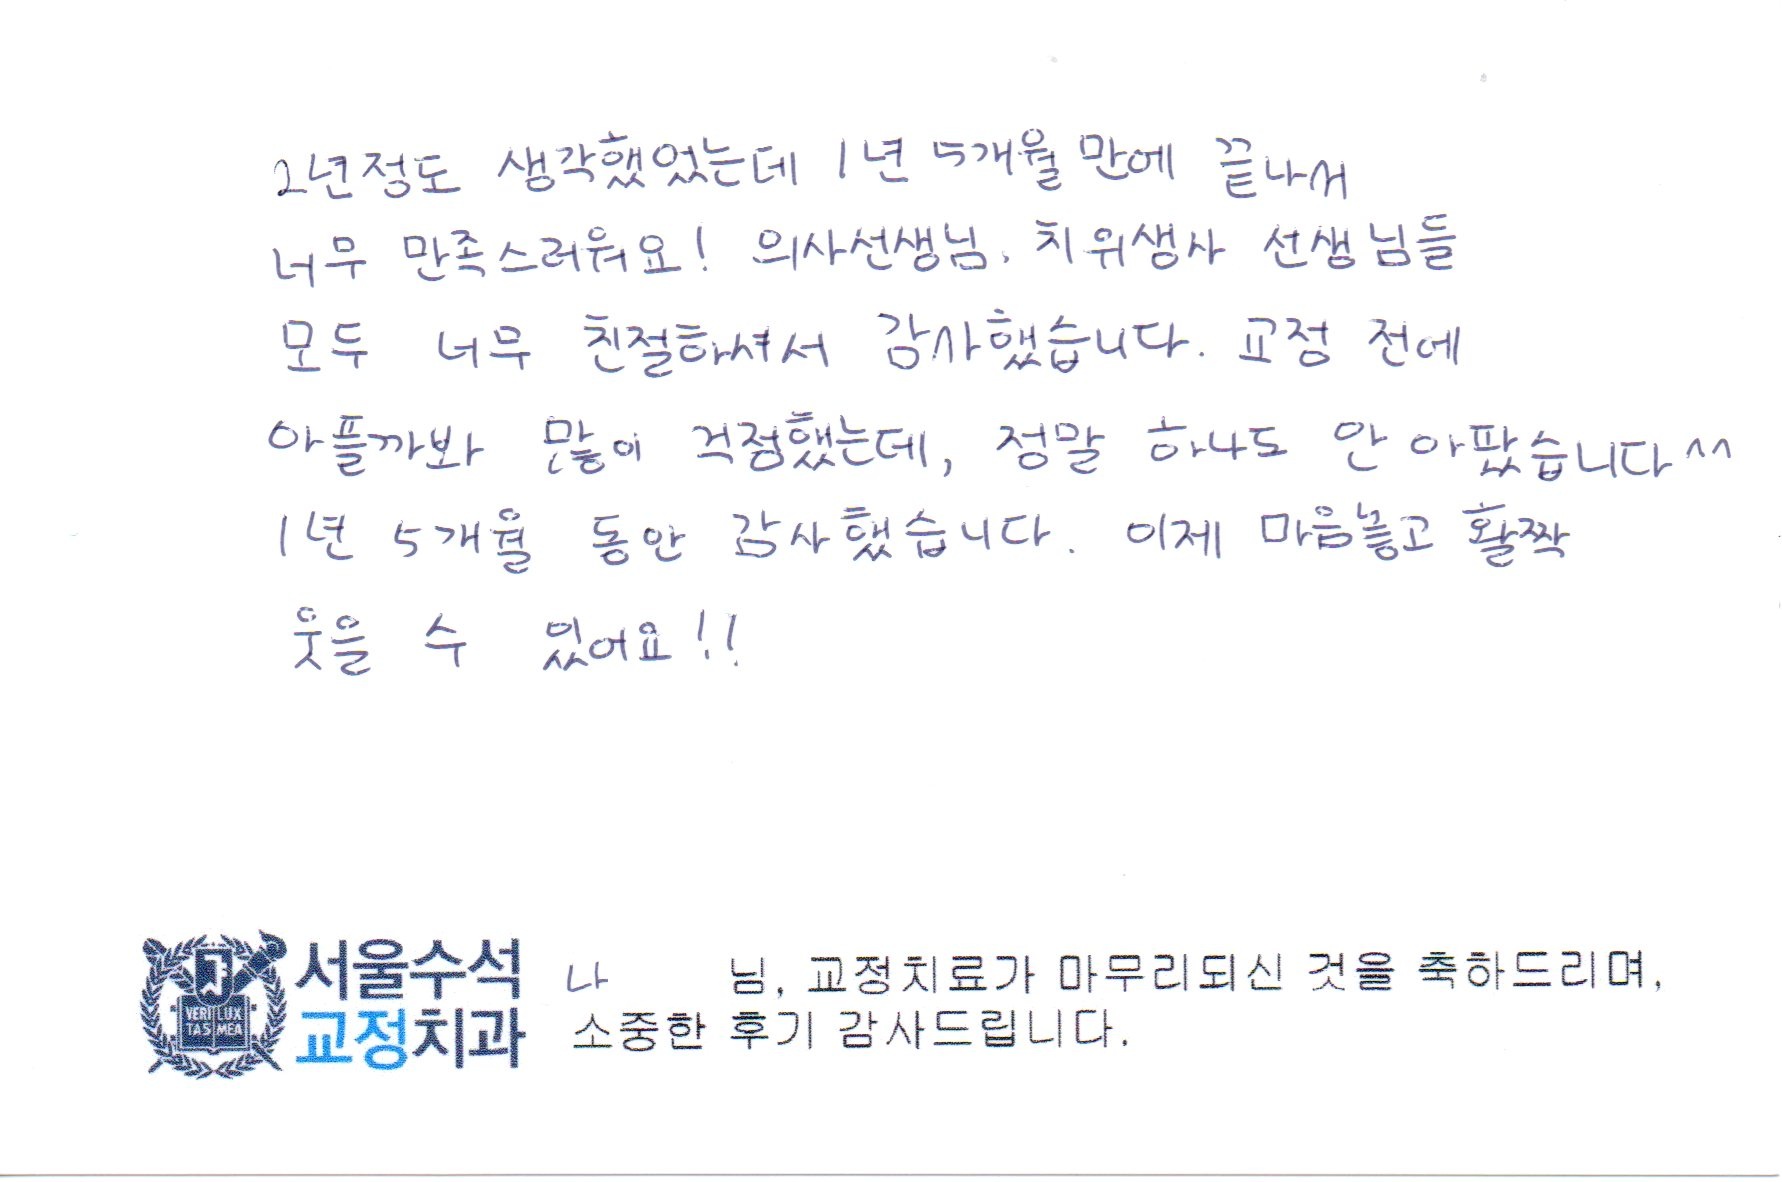 2년정도 생각했었는데 1년 5개월 만에 끝나서
너무 만족스러워요! 의사선생님, 치위생사 선생님들
모두 너무 친절하셔서 감사했습니다. 교정 전에
아플까봐 많이 걱정했는데, 정말 하나도 안 아팠습니다^^
1년 5개월 동안 감사했습니다. 이제 마음놓고 활짝
웃을 수 있어요!!
서울수석
교정치과
VERI LUX
TAS MEA
나 님, 교정치료가 마무리되신 것을 축하드리며,
소중한 후기 감사드립니다.